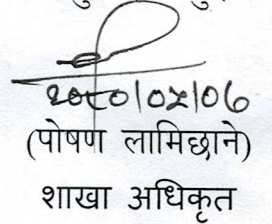 २०८०|०५|०७
(पोषण लामिछाने)
शाखा अधिकृत